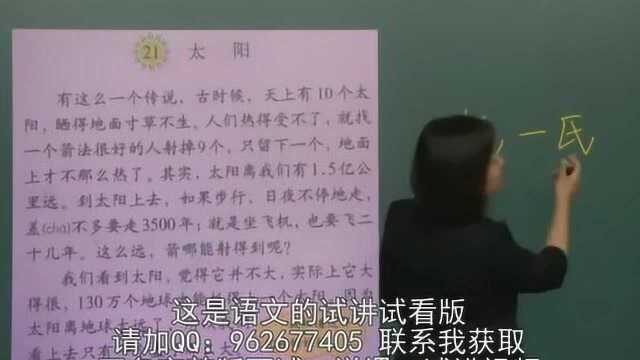 21 太阳
有这么一个传说，古时候，天上有10个太
阳，晒得地面寸草不生。人们热得受不了，就找
一个箭法很好的人射掉9个，只留下一个，地面
上才不那么热了。其实，太阳离我们有1.5亿公
里远。到太阳上去，如果步行，日夜不停地走，
差(chà)不多要走3500年；就是坐飞机，也要飞二
十几年。这么远，箭哪能射得到呢？
我们看到太阳，觉得它并不大，实际上它大
得很，130万个地球
太阳离地球
看上去只有
一氏
这是语文的试讲试看版
请加QQ：962677405 联系我获取